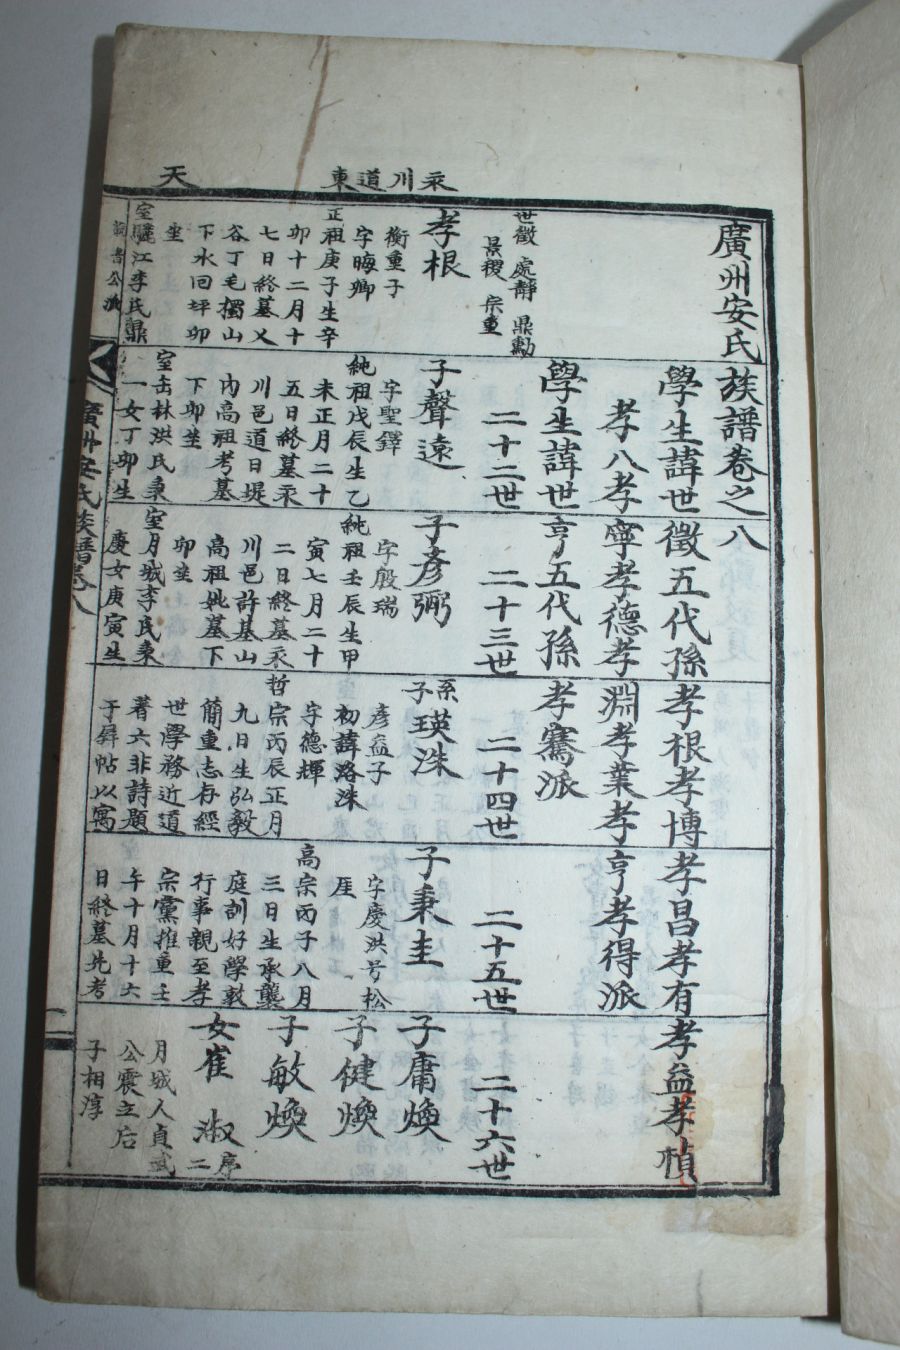 天
東道川永
廣州安氏族譜卷之八
學生諱世徵五代孫孝根孝博孝昌孝有孝益孝楨
孝八孝寧孝德孝淵孝葉孝亨孝得派
學生諱世亨五代孫孝騫派
二十二世
二十三世
二十四世
二十五世
二十六世
世徵 處靜 鼎勳
景稷 宗重
孝根
衡重子
字晦卿
正祖庚子生辛
卯十二月十
七日終墓乂
谷丁毛擱山
下水回坪卯
坐
室驪江李氏鼎
子聲遠
字聖鐸
純祖戊辰生乙
未正月二十
五日終墓永
川邑道日堤
內高祖考墓
下卯坐
室缶林洪氏秉
一女丁卯生
子彥弼
字殷瑞
純祖壬辰生甲
寅七月二十
二日終墓永
川邑許基山
高祖妣墓下
卯坐
室月城李氏東
慶女庚寅生
系子瑛洙
彥益子
初諱洛洙
字德輝
哲宗丙辰正月
九日生弘毅
簡重志存經
世學務近道
著六非詩題
于屛帖以寓
子秉圭
字慶洪号松
厓
高宗丙子八月
三日生承襲
庭訓好學敦
行事親至孝
宗黨推重壬
午十月十六
日終墓先考
子庸煥
子健煥
子敏煥
女崔淑
序二
月城人貞武
公震立后
子相淳
廣州安氏族譜卷八
一